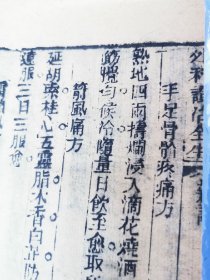 外科證治全生
手足骨骱疼痛方
熟地四兩搗爛浸入滴花燒酒
筋熅旬候冷隨量日飲至愈取
箭風痛方
延胡索桂心五靈脂木香白芷防
連服三日三服愈